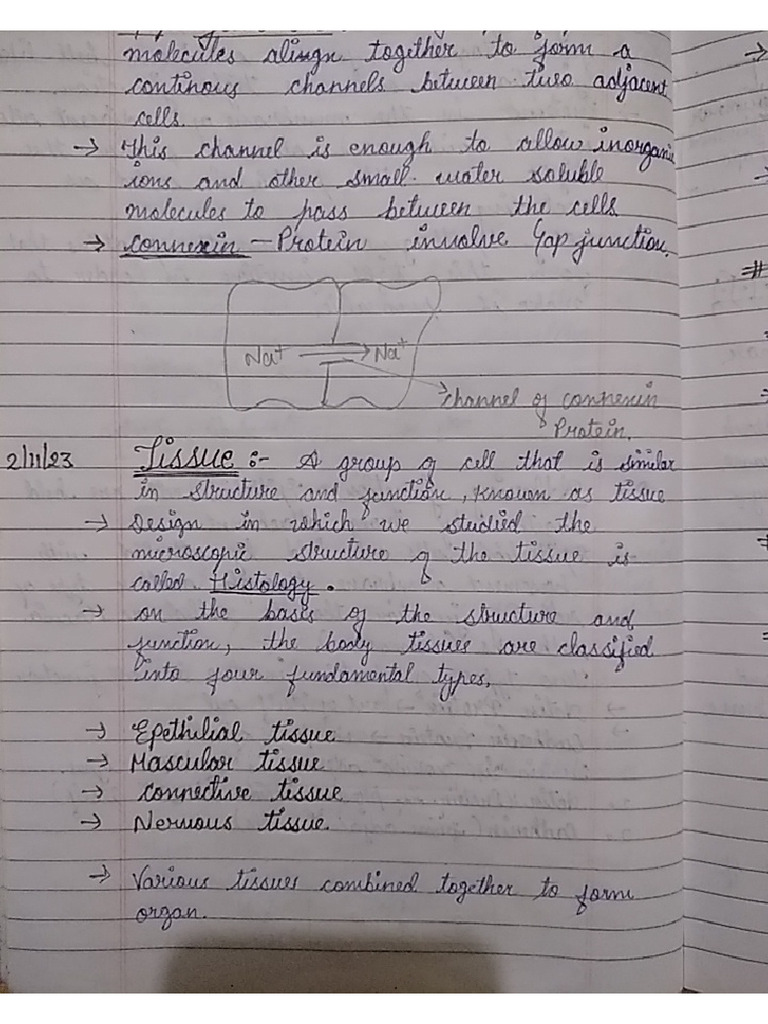 molecules alingn together to form a
continous channels between two adjacent
cells.
→ This channel is enough to allow inorganic
ions and other small water soluble
molecules to pass between the cells
→ connexin – Protein involve Gap junction.
Na+ → Na+
channel of connexin
Protein.
2/11/23 Tissue :- A group of cell that is similar
in structure and function, known as tissue
→ Design in which we studied the
microscopic structure of the tissue is
called Histology.
→ on the basis of the structure and
function, the body tissues are classified
into four fundamental types,
→ Epethilial tissue
→ Mascular tissue
→ connective tissue
→ Nervous tissue.
→ Various tissues combined together to form
organ.